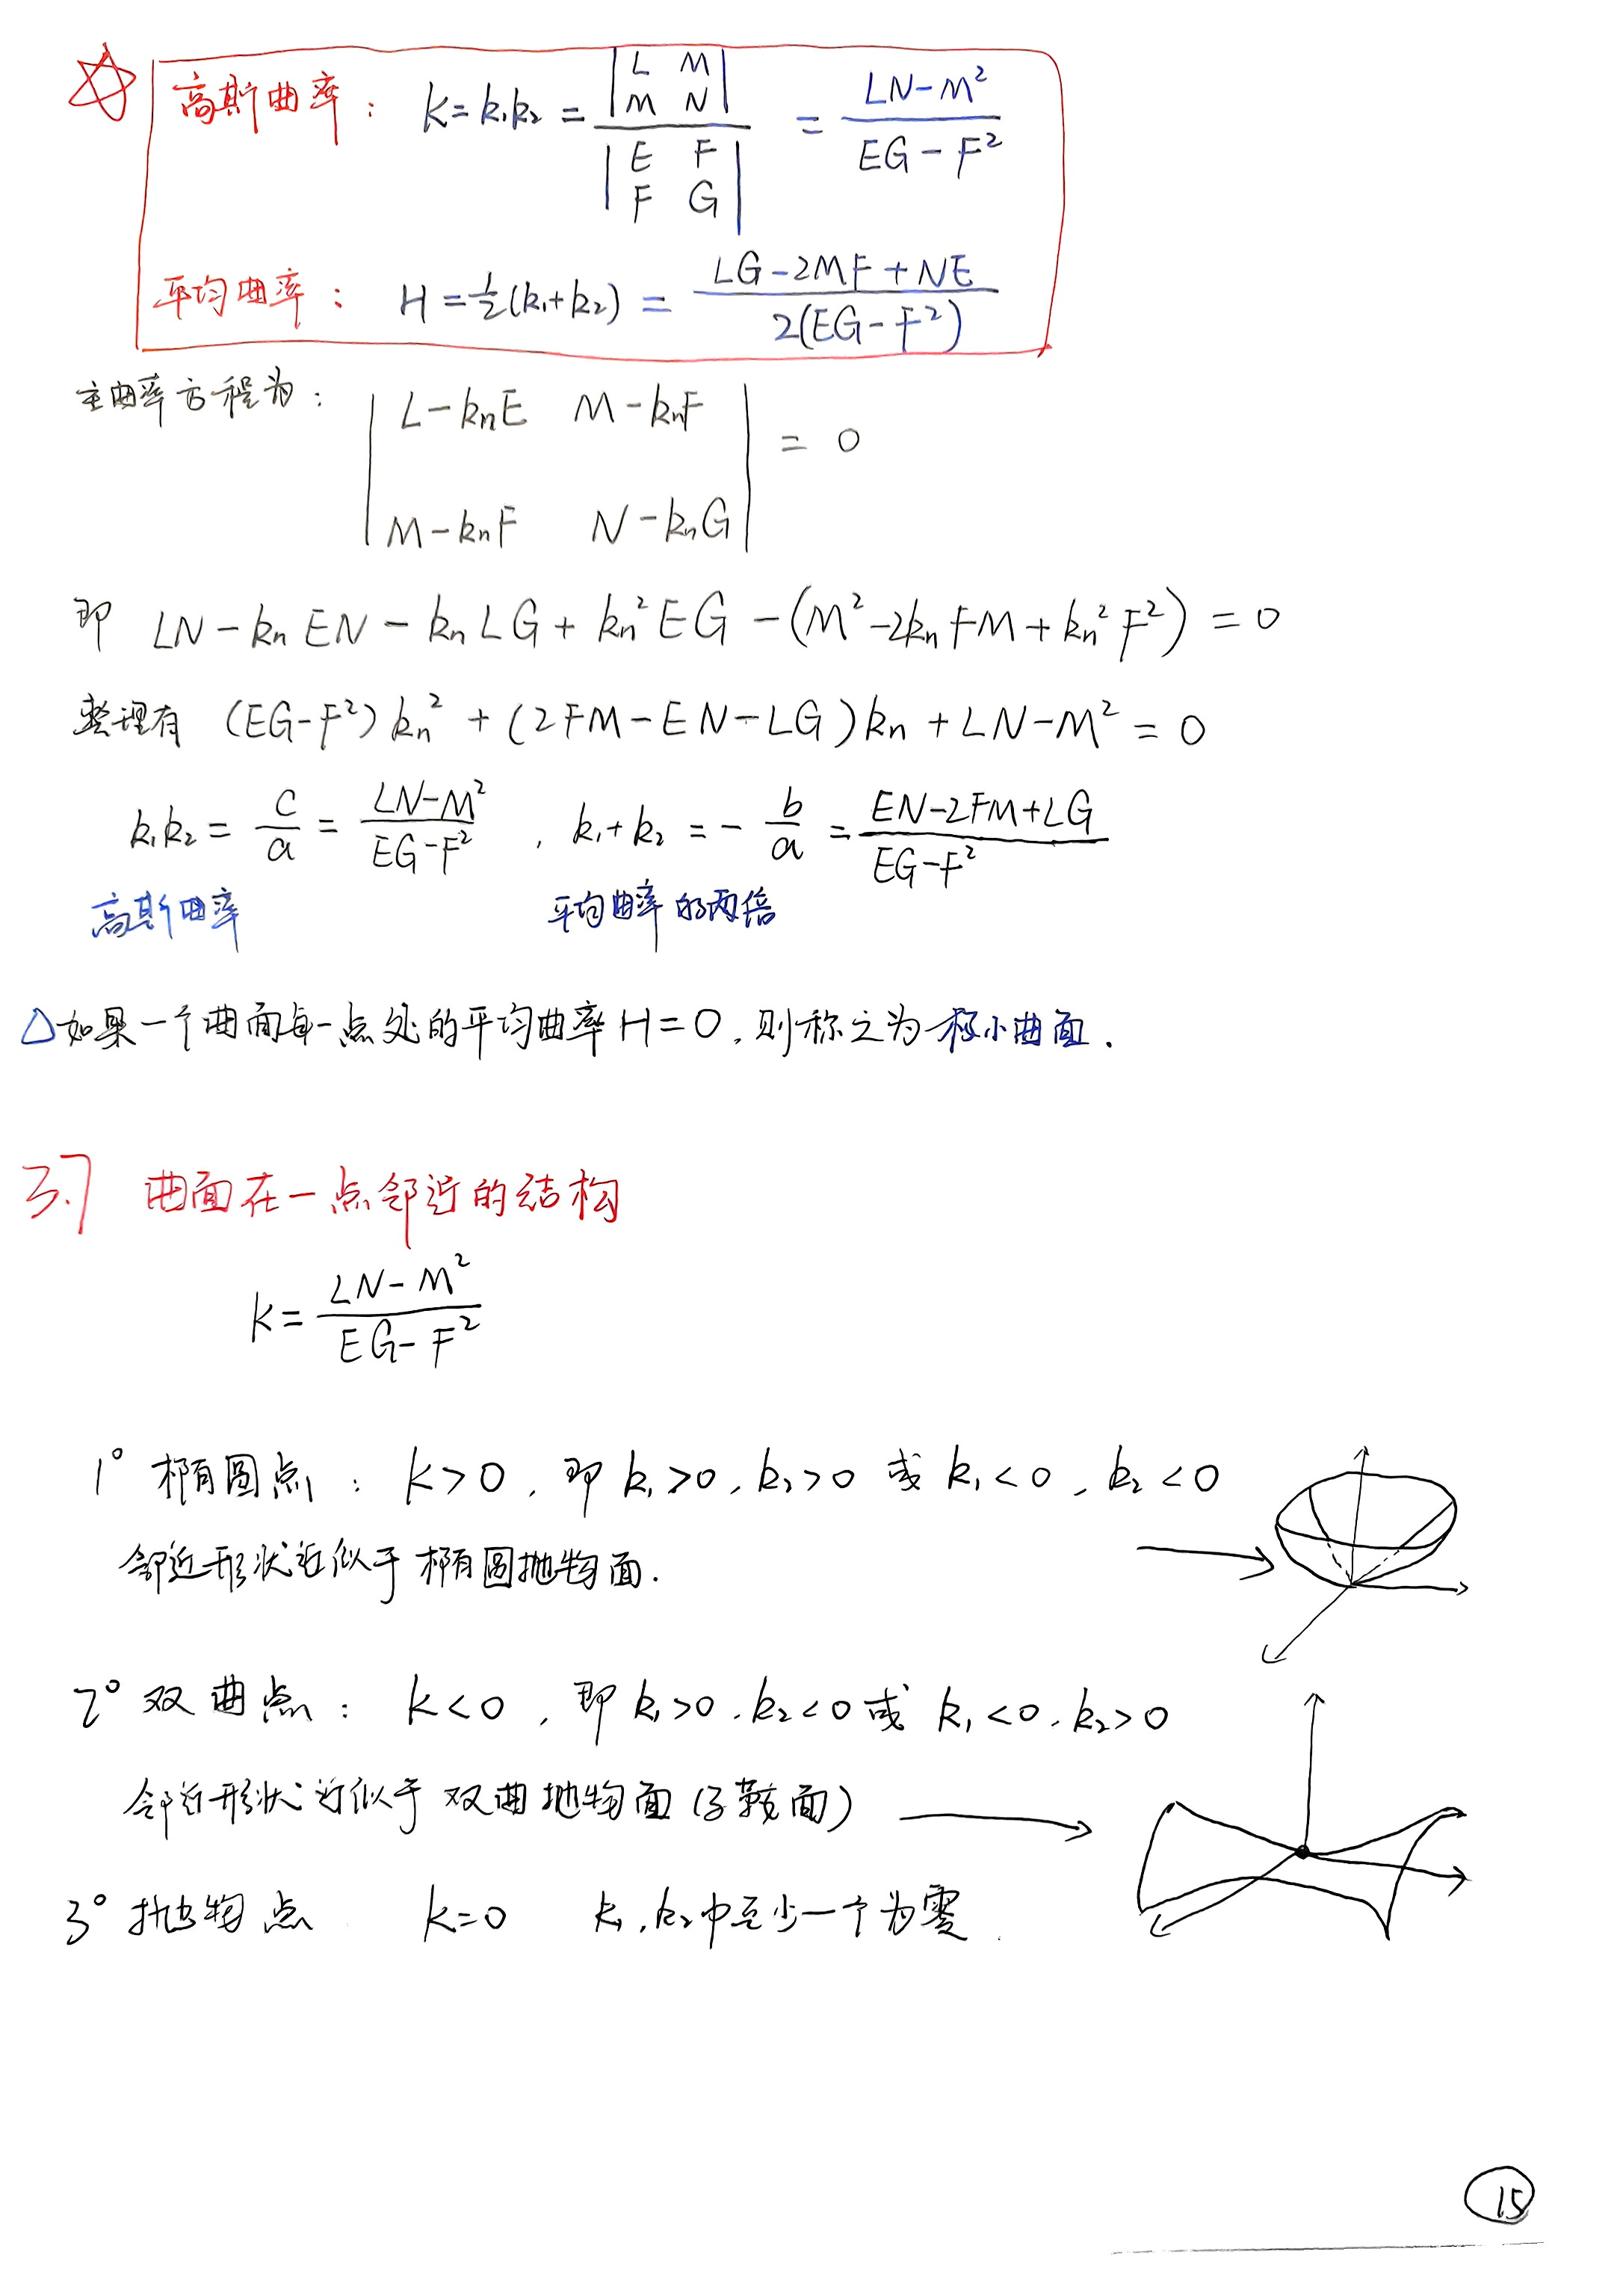 高斯曲率： K=k₁k₂ = |L M; M N| / |E F; F G| = (LN-M²)/(EG-F²)
平均曲率： H=½(k₁+k₂) = (LG-2MF+NE)/(2(EG-F²))
主曲率方程为： |L-kₙE M-kₙF; M-kₙF N-kₙG| = 0
即 LN-kₙEN-kₙLG+kₙ²EG-(M²-2kₙFM+kₙ²F²)=0
整理有 (EG-F²)kₙ²+(2FM-EN-LG)kₙ+LN-M²=0
k₁k₂ = c/a = (LN-M²)/(EG-F²) , k₁+k₂ = -b/a = (EN-2FM+LG)/(EG-F²)
高斯曲率 平均曲率的两倍
△如果一个曲面每一点处的平均曲率H=0,则称之为极小曲面.
3.7 曲面在一点邻近的结构
K=(LN-M²)/(EG-F²)
1° 椭圆点： K>0, 即k₁>0, k₂>0 或 k₁<0, k₂<0
邻近形状近似于椭圆抛物面.
2° 双曲点： K<0, 即k₁>0, k₂<0 或 k₁<0, k₂>0
邻近形状近似于双曲抛物面(马鞍面)
3° 抛物点 K=0 k₁,k₂中至少一个为零.
15